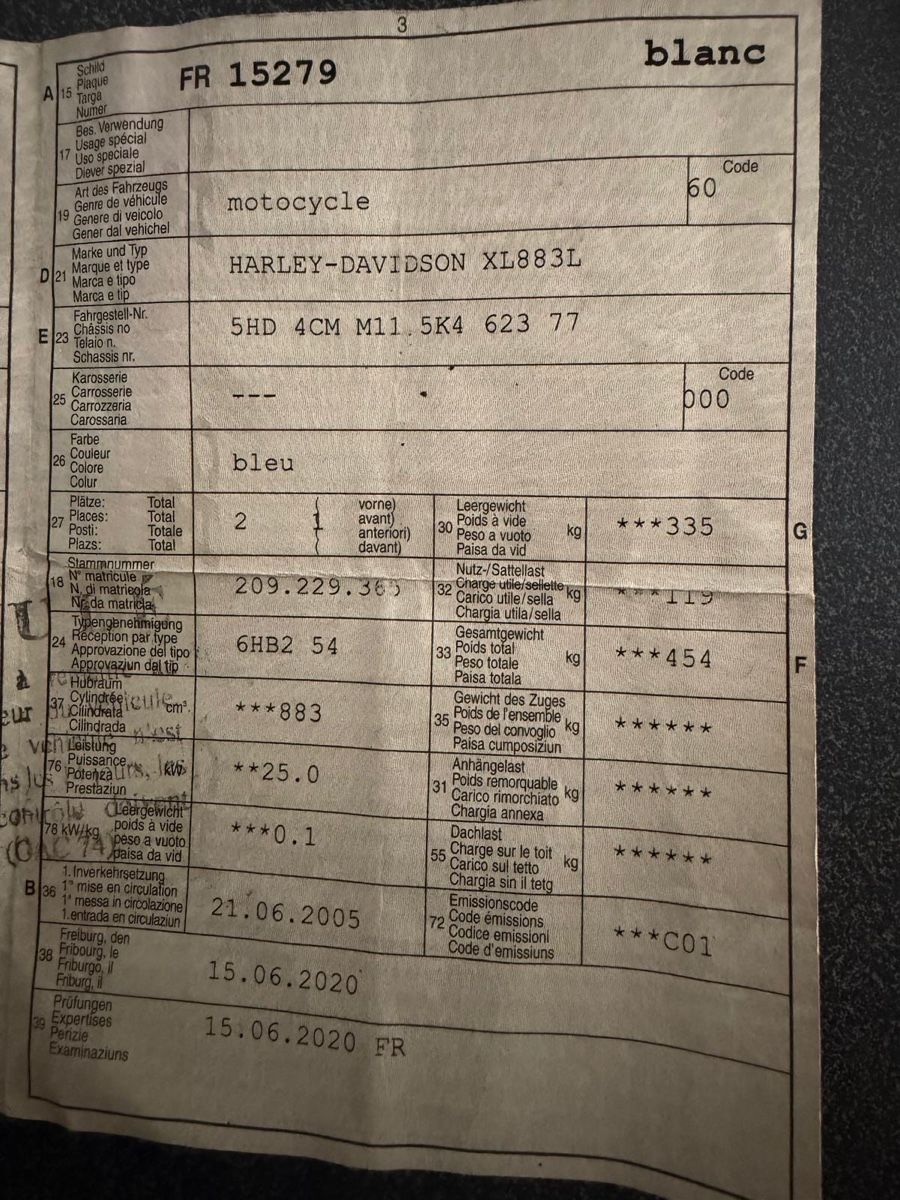 3
A 15 Schild
Plaque
Targa
Numer
FR 15279 blanc
17 Bes. Verwendung
Usage spécial
Uso speciale
Diever spezial
19 Art des Fahrzeugs
Genre de véhicule
Genere di veicolo
Gener dal vehichel
motocycle
Code
60
D 21 Marke und Typ
Marque et type
Marca e tipo
Marca e tip
HARLEY-DAVIDSON XL883L
E 23 Fahrgestell-Nr.
Châssis no
Telaio n.
Schassis nr.
5HD 4CM M11 5K4 623 77
25 Karosserie
Carrosserie
Carrozzeria
Carossaria
---
Code
000
26 Farbe
Couleur
Colore
Colur
bleu
27 Plätze: Total
Places: Total
Posti: Totale
Plazs: Total
2 ( 1 vorne)
avant)
anteriori)
( davant)
30 Leergewicht
Poids à vide
Peso a vuoto
Paisa da vid
kg
***335
G
18 Stammnummer
N° matricule
N. di matricola
Nr. da matricla
209.229.3
32 Nutz-/Sattellast
Charge utile/sellette
Carico utile/sella
Chargia utila/sella
kg
***119
24 Typengenehmigung
Réception par type
Approvazione del tipo
Approvaziun dal tip
6HB2 54
33 Gesamtgewicht
Poids total
Peso totale
Paisa totala
kg
***454
F
37 Hubraum
Cylindrée
Cilindrata
Cilindrada
cm³.
***883
35 Gewicht des Zuges
Poids de l'ensemble
Peso del convoglio
Paisa cumposiziun
kg
******
76 Leistung
Puissance
Potenza
Prestaziun
kW
**25.0
31 Anhängelast
Poids remorquable
Carico rimorchiato
Chargia annexa
kg
******
78 kW/kg Leergewicht
poids à vide
peso a vuoto
paisa da vid
***0.1
55 Dachlast
Charge sur le toit
Carico sul tetto
Chargia sin il tetg
kg
******
B 36 1. Inverkehrsetzung
1re mise en circulation
1a messa in circolazione
1. entrada en circulaziun
21.06.2005
72 Emissionscode
Code émissions
Codice emissioni
Code d'emissiuns
***C01
38 Freiburg, den
Fribourg, le
Friburgo, il
Friburg, il
15.06.2020
39 Prüfungen
Expertises
Perizie
Examinaziuns
15.06.2020 FR